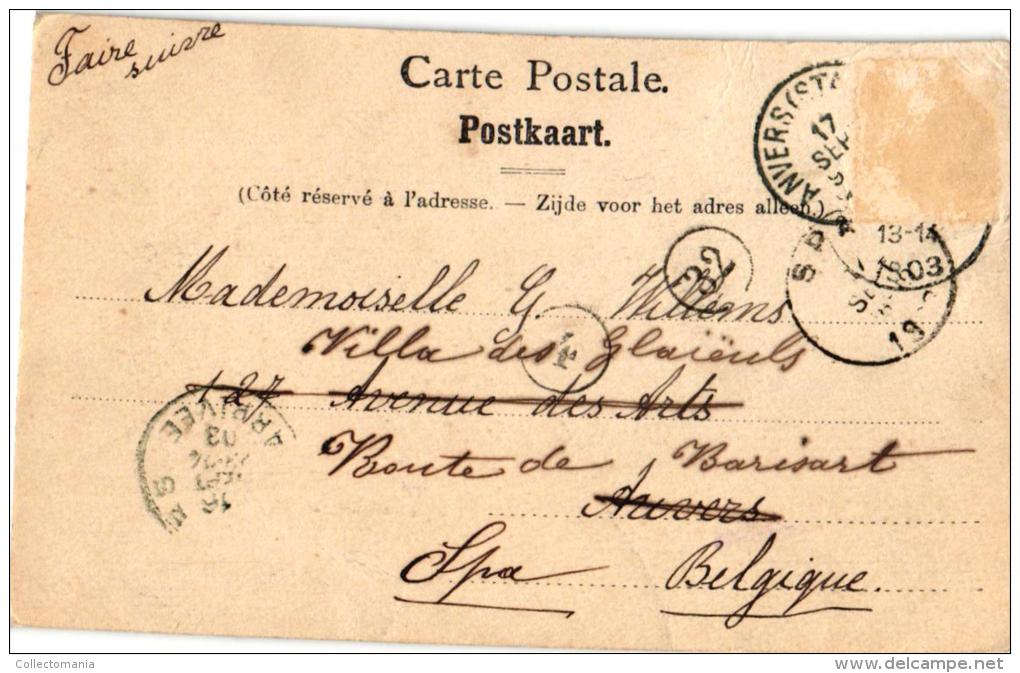 Faire
suivre
Carte Postale.
Postkaart.
(Côté réservé à l'adresse. — Zijde voor het adres alleen.)
ANVERS (STA
17
SEP
13-14
1903
SPA
SE
19
32
4
Mademoiselle G. Willems
Villa des Glaïeuls
127 Avenue des Arts
Route de Barisart
Anvers
Spa Belgique.
ARRIVEE
03
16
Collectomania
delcampe.net